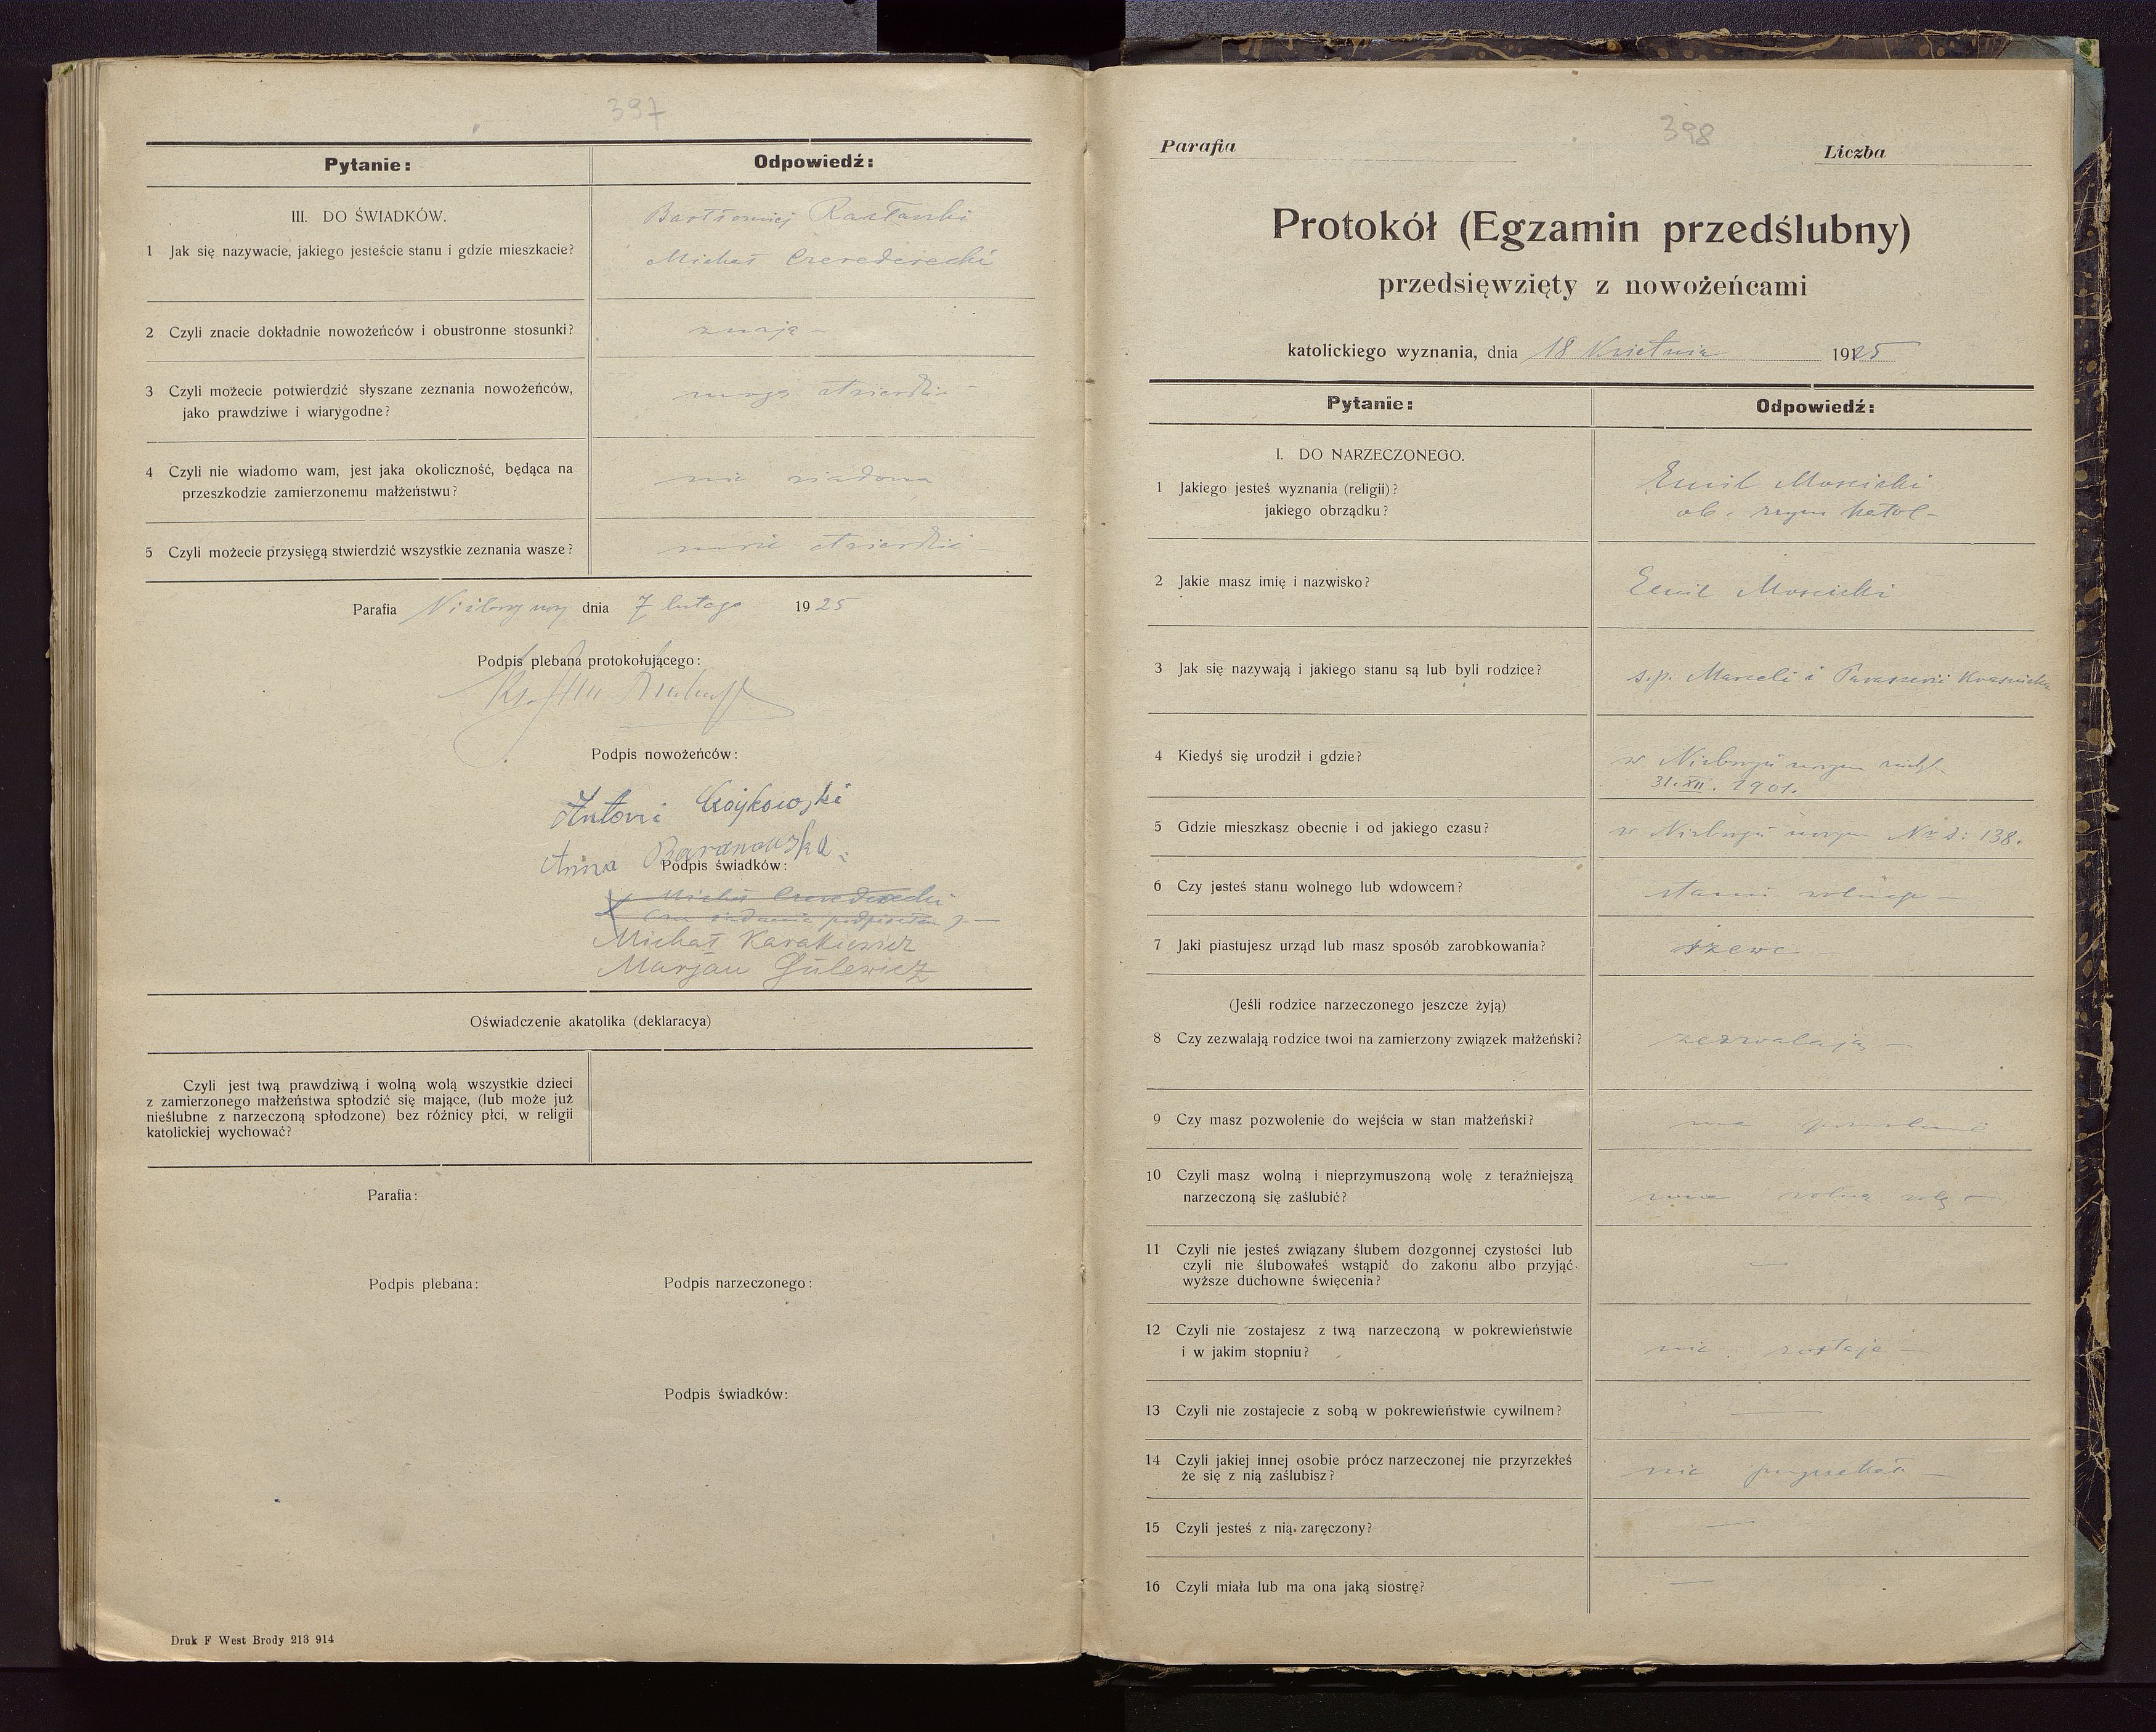 397
Pytanie:
Odpowiedź:
III. DO ŚWIADKÓW.
1 Jak się nazywacie, jakiego jesteście stanu i gdzie mieszkacie?
Bartłomiej
Michał
2 Czyli znacie dokładnie nowożeńców i obustronne stosunki?
znają –
3 Czyli możecie potwierdzić słyszane zeznania nowożeńców,
jako prawdziwe i wiarygodne?
mogą
4 Czyli nie wiadomo wam, jest jaka okoliczność, będąca na
przeszkodzie zamierzonemu małżeństwu?
nie wiadoma
5 Czyli możecie przysięgą stwierdzić wszystkie zeznania wasze?
Parafia dnia 7 lutego 1925
Podpis plebana protokołującego:
Podpis nowożeńców:
Antoni
Anna Baranowska
Podpis świadków:
Michał Karakiewicz
Marjan Gulewicz
Oświadczenie akatolika (deklaracya)
Czyli jest twą prawdziwą i wolną wolą wszystkie dzieci
z zamierzonego małżeństwa spłodzić się mające, (lub może już
nieślubne z narzeczoną spłodzone) bez różnicy płci, w religii
katolickiej wychować?
Parafia:
Podpis plebana:
Podpis narzeczonego:
Podpis świadków:
Druk F West Brody 213 914
398
Parafia
Liczba
Protokół (Egzamin przedślubny)
przedsięwzięty z nowożeńcami
katolickiego wyznania, dnia 18 Kwietnia 1925
Pytanie:
Odpowiedź:
I. DO NARZECZONEGO.
1 Jakiego jesteś wyznania (religii)?
jakiego obrządku?
Emil Moscicki
ob. rzym katol –
2 Jakie masz imię i nazwisko?
Emil Moscicki
3 Jak się nazywają i jakiego stanu są lub byli rodzice?
s.p. Marceli i
4 Kiedyś się urodził i gdzie?
w Nizborgu nowym
31. XII. 1901.
5 Gdzie mieszkasz obecnie i od jakiego czasu?
w Nizborgu nowym Nr d: 138.
6 Czy jesteś stanu wolnego lub wdowcem?
stanu wolnego –
7 Jaki piastujesz urząd lub masz sposób zarobkowania?
szewc –
(Jeśli rodzice narzeczonego jeszcze żyją)
8 Czy zezwalają rodzice twoi na zamierzony związek małżeński?
zezwalają –
9 Czy masz pozwolenie do wejścia w stan małżeński?
ma
10 Czyli masz wolną i nieprzymuszoną wolę z teraźniejszą
narzeczoną się zaślubić?
wolną wolę –
11 Czyli nie jesteś związany ślubem dozgonnej czystości lub
czyli nie ślubowałeś wstąpić do zakonu albo przyjąć
wyższe duchowne święcenia?
—
12 Czyli nie zostajesz z twą narzeczoną w pokrewieństwie
i w jakim stopniu?
nie zostaje –
13 Czyli nie zostajecie z sobą w pokrewieństwie cywilnem?
—
14 Czyli jakiej innej osobie prócz narzeczonej nie przyrzekłeś
że się z nią zaślubisz?
nie
15 Czyli jesteś z nią zaręczony?
—
16 Czyli miała lub ma ona jaką siostrę?
—